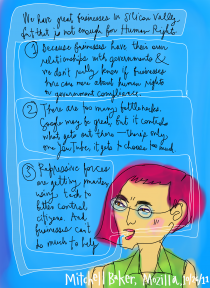 We have great businesses in Silicon Valley
but that is not enough for Human Rights.
① Because businesses have their own
relationships with governments &
we don't fully know if businesses
care more about human rights
or government compliance.
② There are too many bottlenecks.
Google may be great, but it controls
what gets out there — there's only
one YouTube, it gets to choose
③ Repressive forces
are getting smarter
using tech to
better control
citizens. And
businesses can't
do much to help
Mitchell Baker, Mozilla,